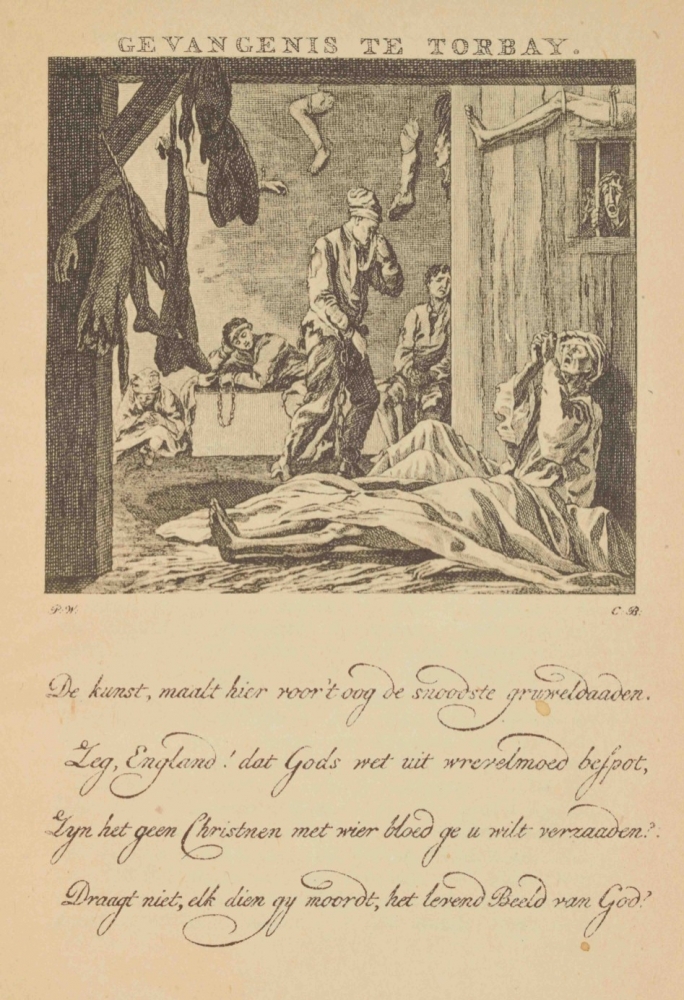 GEVANGENIS TE TORBAY.
P. W.
C. B.
De kunst, maalt hier voor't oog de snoodste gruweldaaden.
Zeg, England! dat Gods wet uit wrevelmoed bespot,
Zyn het geen Christnen met wier bloed ge u wilt verzaaden?.
Draagt niet, elk dien gy moordt, het levend Beeld van God?